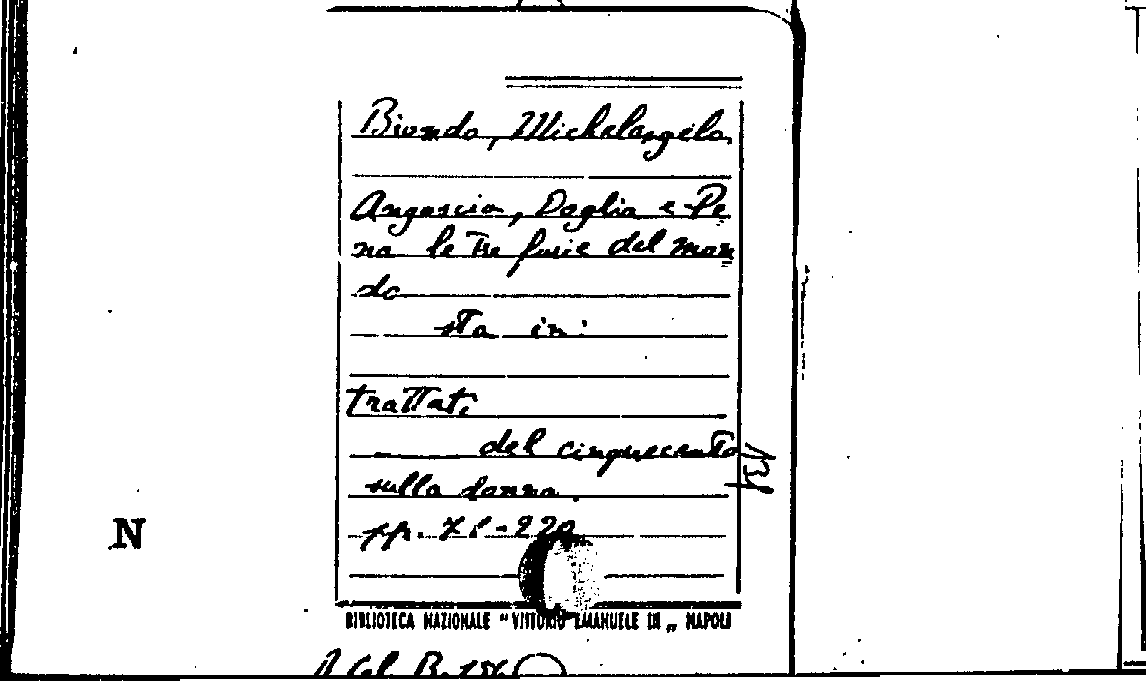 Biondo, Michelangelo
Angoscia, Doglia e Pe
na le Tre furie del mon
do
sta in:
trattati
del cinquecento
sulla donna.
pp. 71-220
N
BIBLIOTECA NAZIONALE "VITTORIO EMANUELE III" NAPOLI